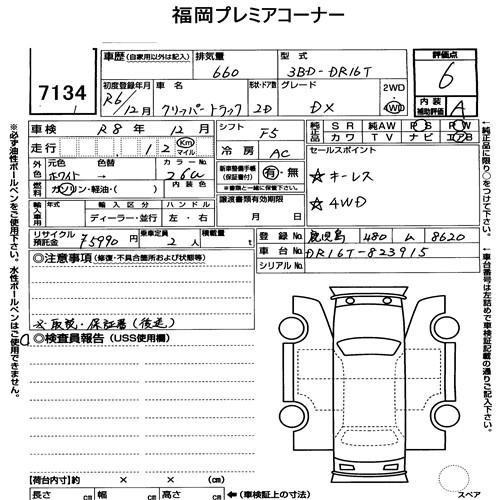 福岡プレミアコーナー
7134
車歴 (自家用以外は記入) 排気量 660 型式 3BD-DR16T 評価点 6
初度登録年月 R6/12月 車名 クリッパートラック 形状・ドア数 2D グレード DX 2WD 4WD 内装補助評価 A
車検 R8年 12月 シフト F5 純正品 SR 純AW PS PW
走行 12 Km マイル 冷房 AC カワ TV ナビ エアB
外色 元色 ホワイト → 色替 カラーNo. 26U 新車整備手帳 (保証書付) 有・無 セールスポイント
※書類と一緒に後渡し。 ☆キーレス
燃料 ガソリン・軽油・( ) 内装色 譲渡書類有効期限 ☆4WD
輸入車用 輸入区分 ハンドル 月 日
ディーラー・並行 左・右
リサイクル預託金 75990円 乗車定員 2人 積載量 t 登録No. 鹿児島 480 ム 8620
◎注意事項 (修復・不具合箇所および状態等) 車台No. DR16T-823915
シリアルNo.
※取説・保証書(後送)
◎検査員報告 (USS使用欄)
【荷台内寸】約 × ×
長さ cm 幅 cm 高さ cm ←(車検証上の寸法)
スペア
※必ず油性ボールペンをご使用下さい。水性ボールペンはご使用できません。
←純正品に限り○をつけて下さい。
←車台番号は左詰めで車検証記載の通りご記入下さい。